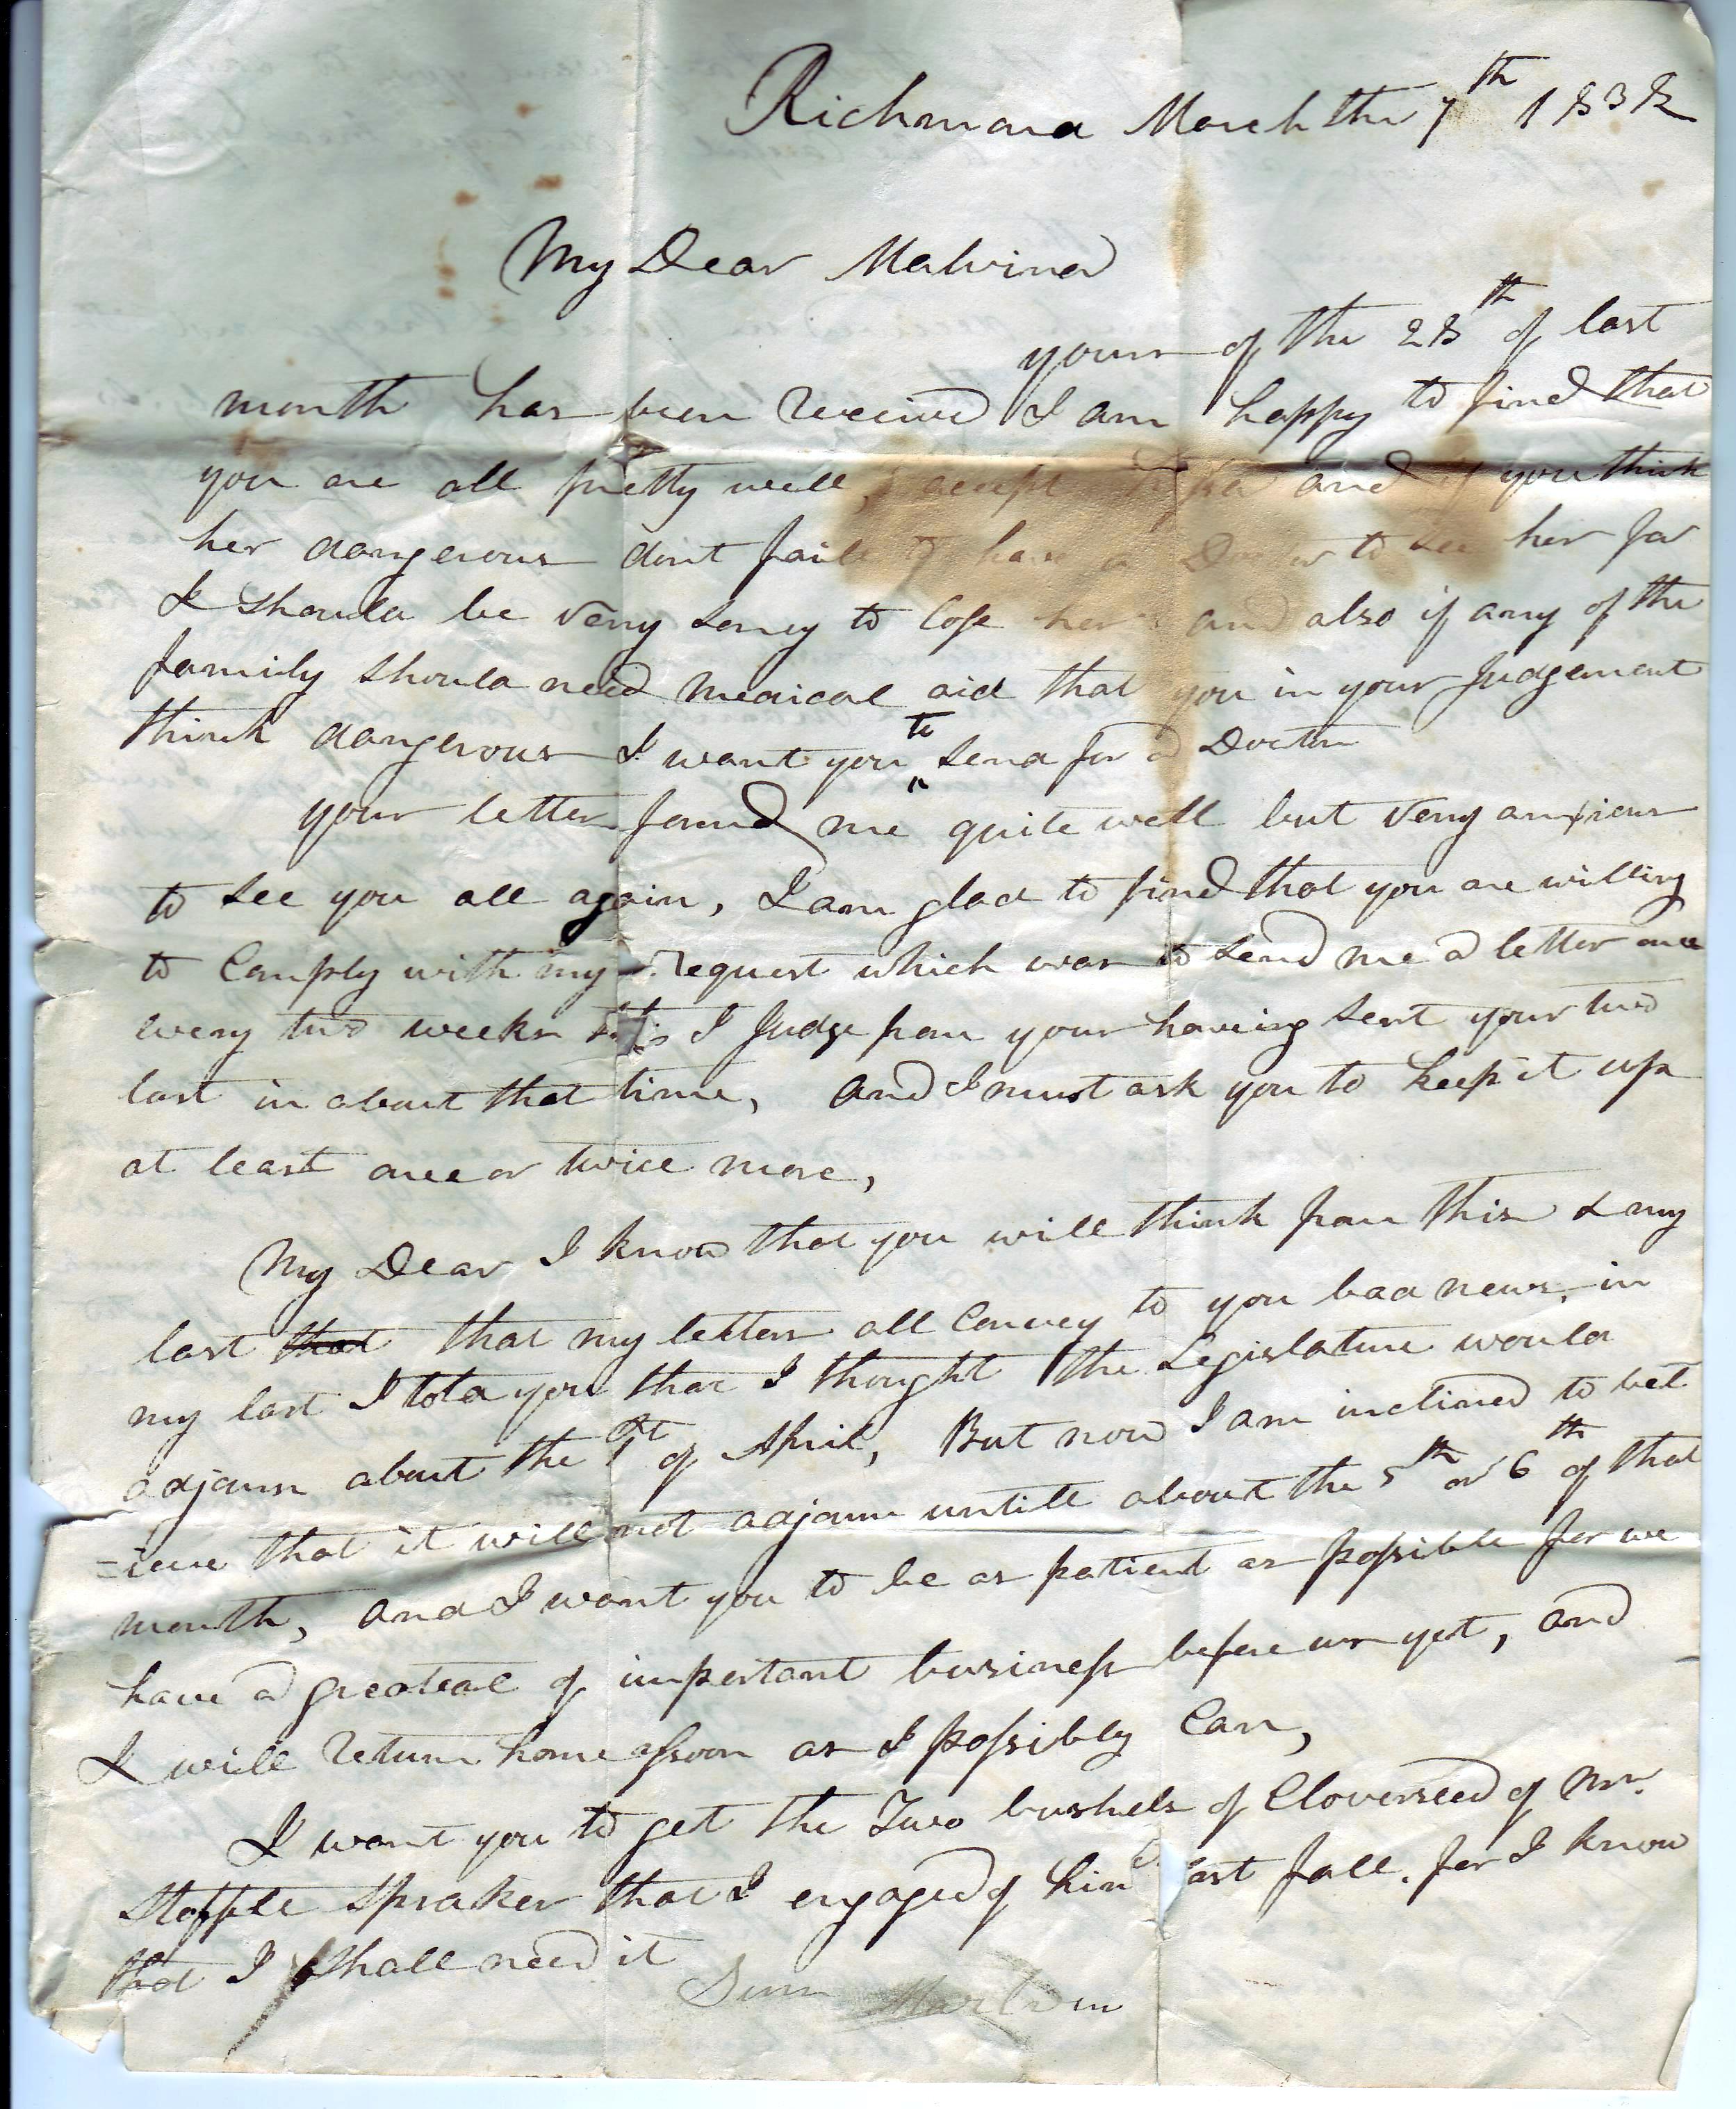 Richmond March the 7th 1838
My Dear Malvina
yours of the 28th of last
month has been received I am happy to find that
you are all pretty well, accept and if you think
her dangerous dont faill to have a Doctor to see her for
I should be very sorry to lose her and also if any of the
family should need medical aid that you in your Judgement
think dangerous I want you to send for a Doctor
your letter found me quite well but very anxious
to see you all again, I am glad to find that you are willing
to Comply with my request which was to send me a letter once
every two weeks this I Judge from your having sent your two
last in about that time, and I must ask you to keep it up
at least once or twice more,
My Dear I know that you will think from this & my
last that that my letters all Convey to you bad news, in
my last I told you that I thought the Legislature would
adjourn about the 1st of April, But now I am inclined to bel
=ieve that it will not adjourn untill about the 5th or 6th of that
month, and I want you to be as patient as possible for we
have a greateal of important business before us yet, and
I will return home assoon as I possibly Can,
I want you to get the Two bushels of Cloverseed of Mr.
Stoffle Spraker that I engaged of him last fall. for I know
that I shall need it